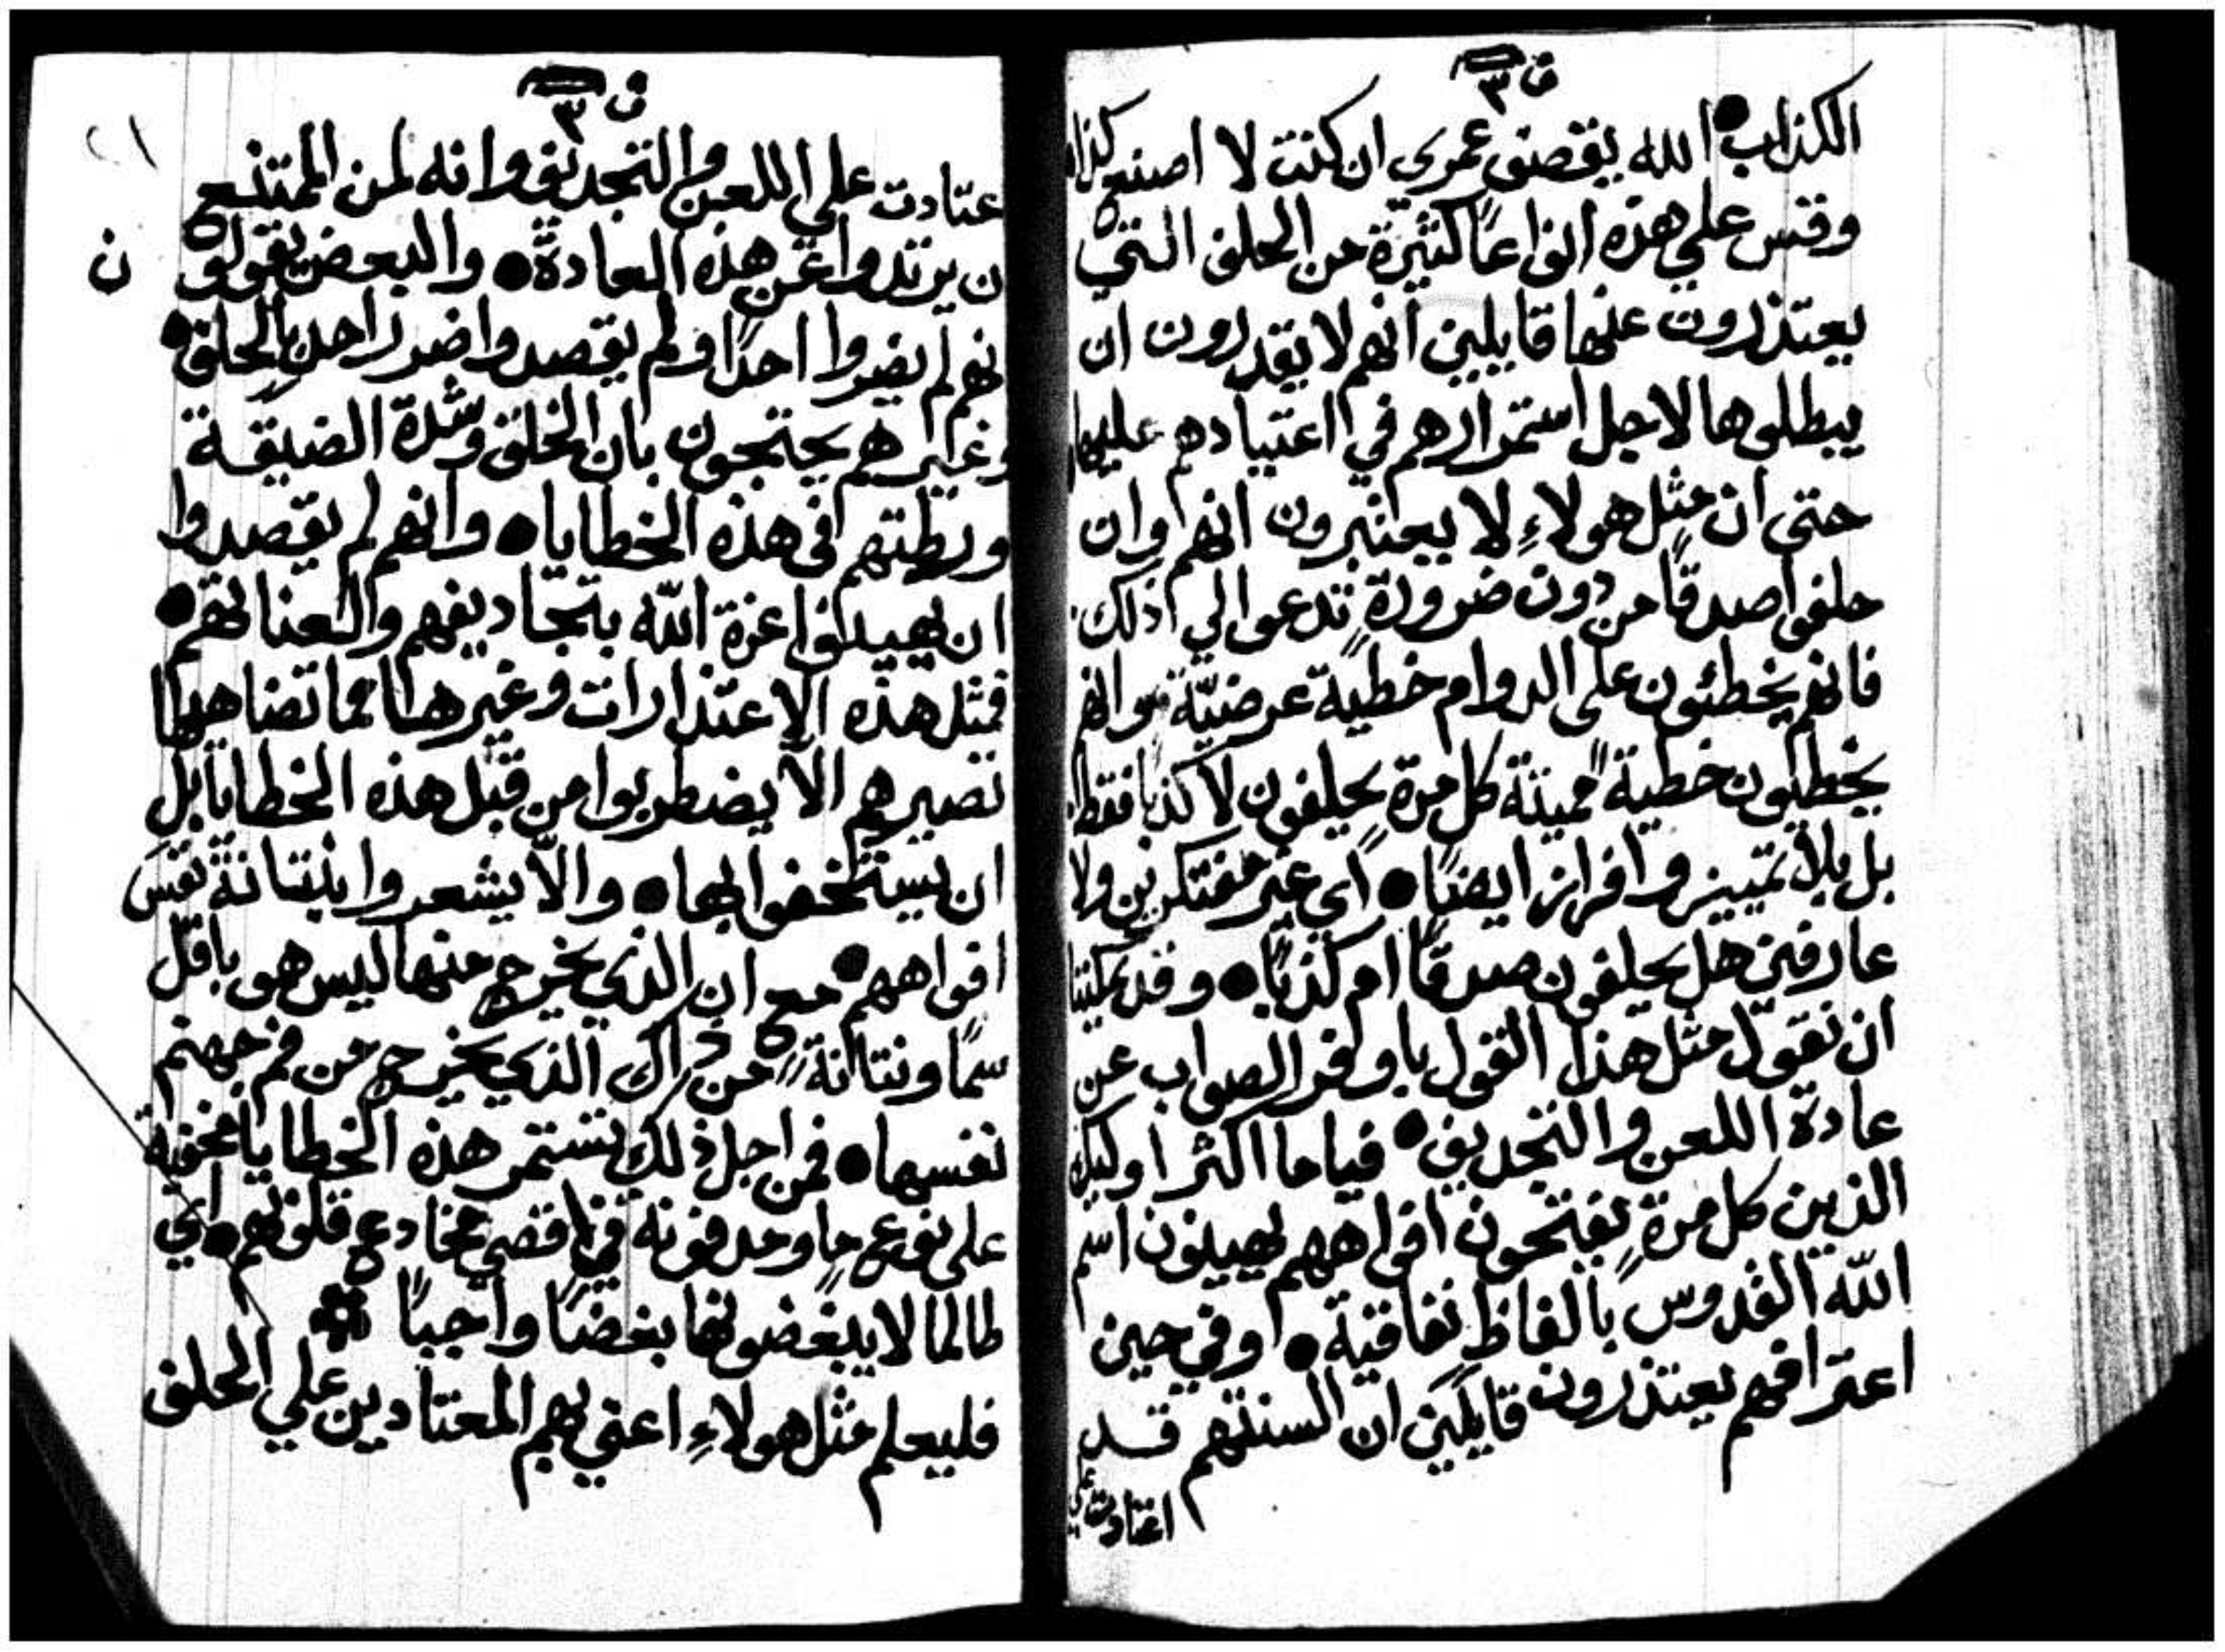 ف ٣
الكذاب • الله يقصف عمري ان كنت لا اصنع كذا
وقس علي هذه انواعًا كثيرة من الحلف التي
يعتذرون عنها قايلين انهم لا يقدرون ان
يبطلوها لاجل استمرارهم في اعتيادهم عليها
حتى ان مثل هولاءِ لا يعتبرون انهم وان
حلفوا صدقًا من دون ضرورةٍ تدعوا الي ذلك
فانهم يخطئون على الدوام خطيةً عرضيّة وانهم
يخطيون خطيةً مميتة كل مرةٍ يحلفون لا كذبًا فقط
بل بلا تمييز وافراز ايضًا • اي غير مفتكرين ولا
عارفين هل يحلفون صدقًا ام كذبًا • وقد يمكننا
ان نقول مثل هذا القول باوفر الصواب عن
عادة اللعن والتجديف • فياما اكثر اوليك
الذين كل مرةٍ يفتحون افواههم يهينون اسم
الله القدوس بالفاظ نفاقية • وفي حين
اعترافهم يعتذرون قايلين ان السنتهم قد
اعتادت علي
ف ٣
عتادت علي اللعن والتجديف وانه لمن الممتنع
ن يرتدوا عن هذه العادة • والبعض يقولو ن
نهم لم يضروا احدًا ولم يقصدوا ضرر احدٍ بالحلف •
وغيرهم يحتجون بان الخلق وشدة الضيقة
ورطتهم في هذه الخطايا • وانهم لم يقصدوا
ان يهينوا عزة الله بتجاديفهم والعناتهم •
فمثل هذه الاعتذارات وغيرها مما تضاهيها
تصيرهم الّا يضطربوا من قبل هذه الخطايا بل
ان يستخفوا بها • والّا يشعروا بنتانة نفس
افواههم • مع ان الذي يخرج منها ليس هو باقل
سمًا ونتانةً من ذاك الذي يخرج من فم جهنم
نفسها • فمن اجل ذلك تستمر هذه الخطايا مخفية
على نوع ما ومدفونة في اقصي مخادع قلوبهم • اي
طالما لا يبغضونها بغضًا واجبًا
فليعلم مثل هولاءِ اعني بهم المعتادين علي الحلف